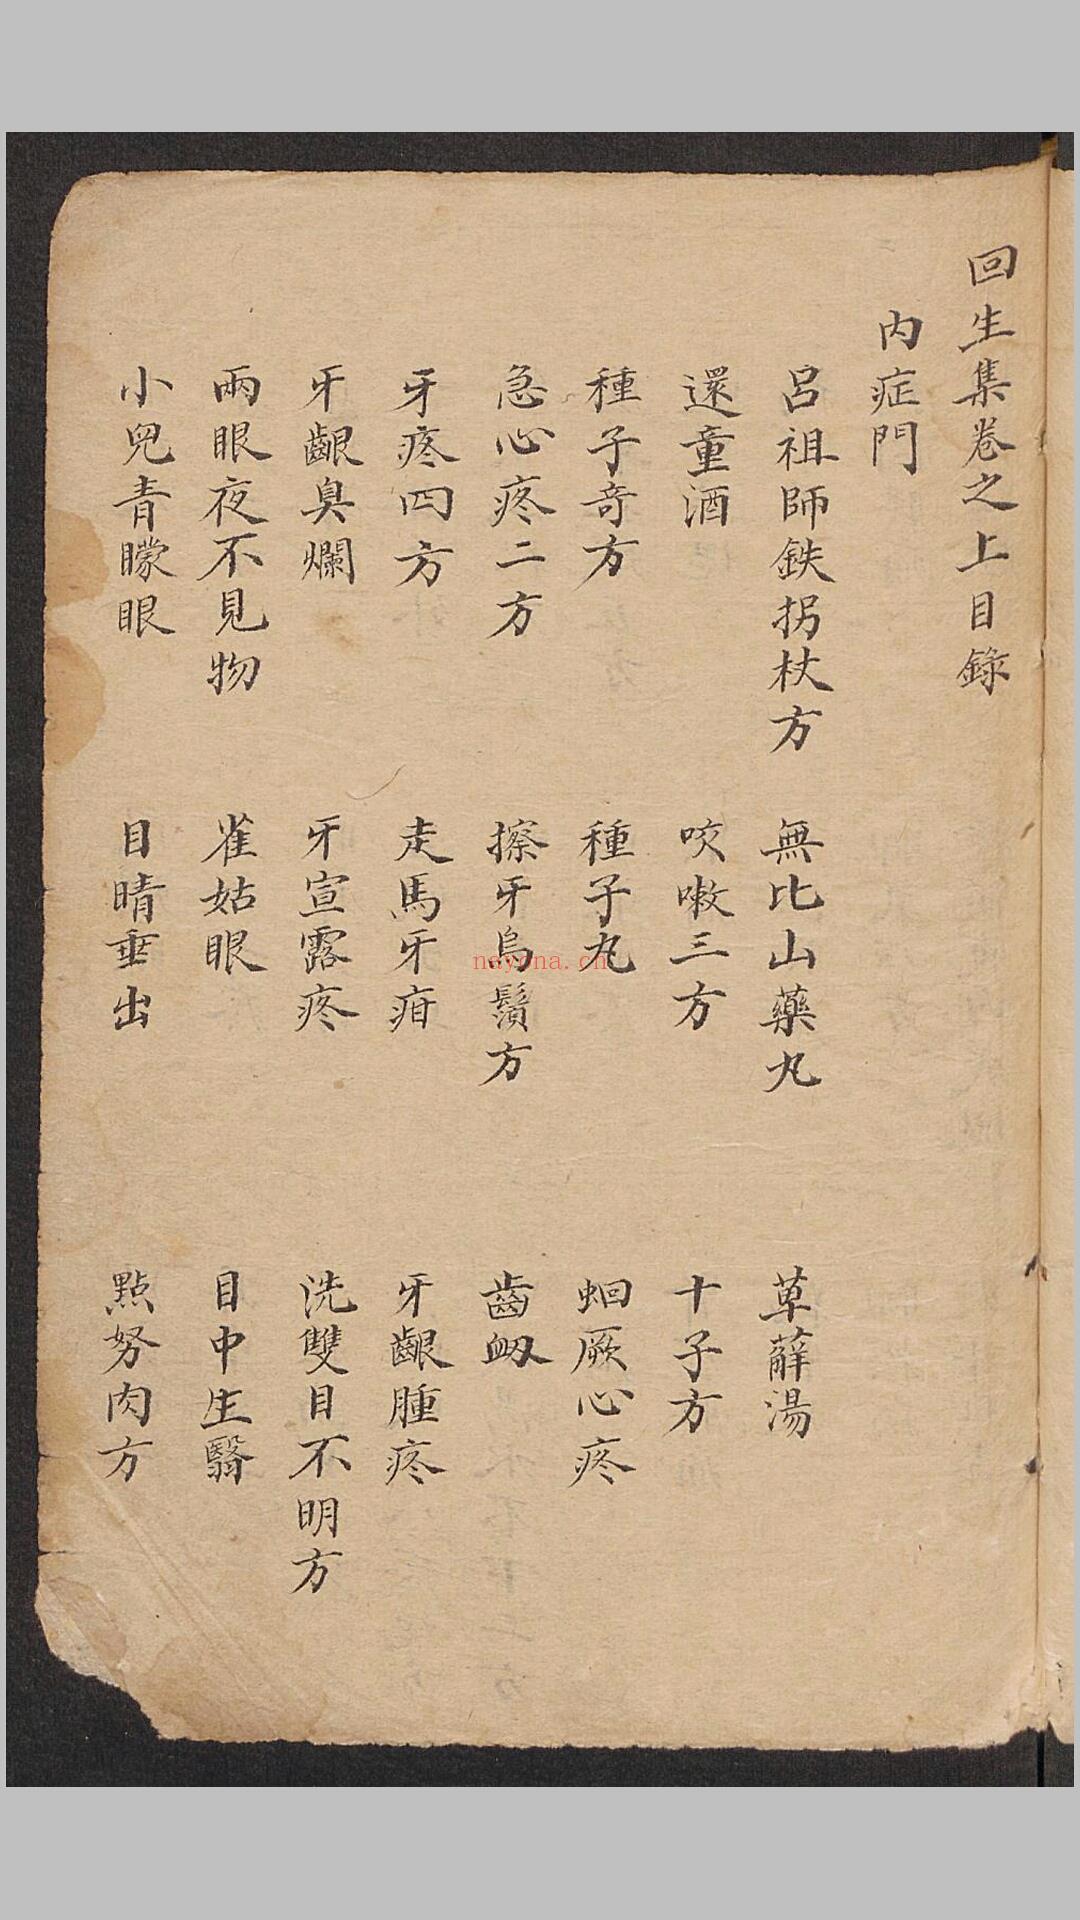 回生集卷之上目錄
內症門
呂祖師鉄拐杖方 無比山藥丸 草薢湯
還童酒 咳嗽三方 十子方
種子奇方 種子丸 蛔厥心疼
急心疼二方 擦牙烏鬚方 齒衂
牙疼四方 走馬牙疳 牙齦腫疼
牙齦臭爛 牙宣露疼 洗雙目不明方
兩眼夜不見物 雀姑眼 目中生翳
小兒青矇眼 目睛垂出 點努肉方
nayona.cn